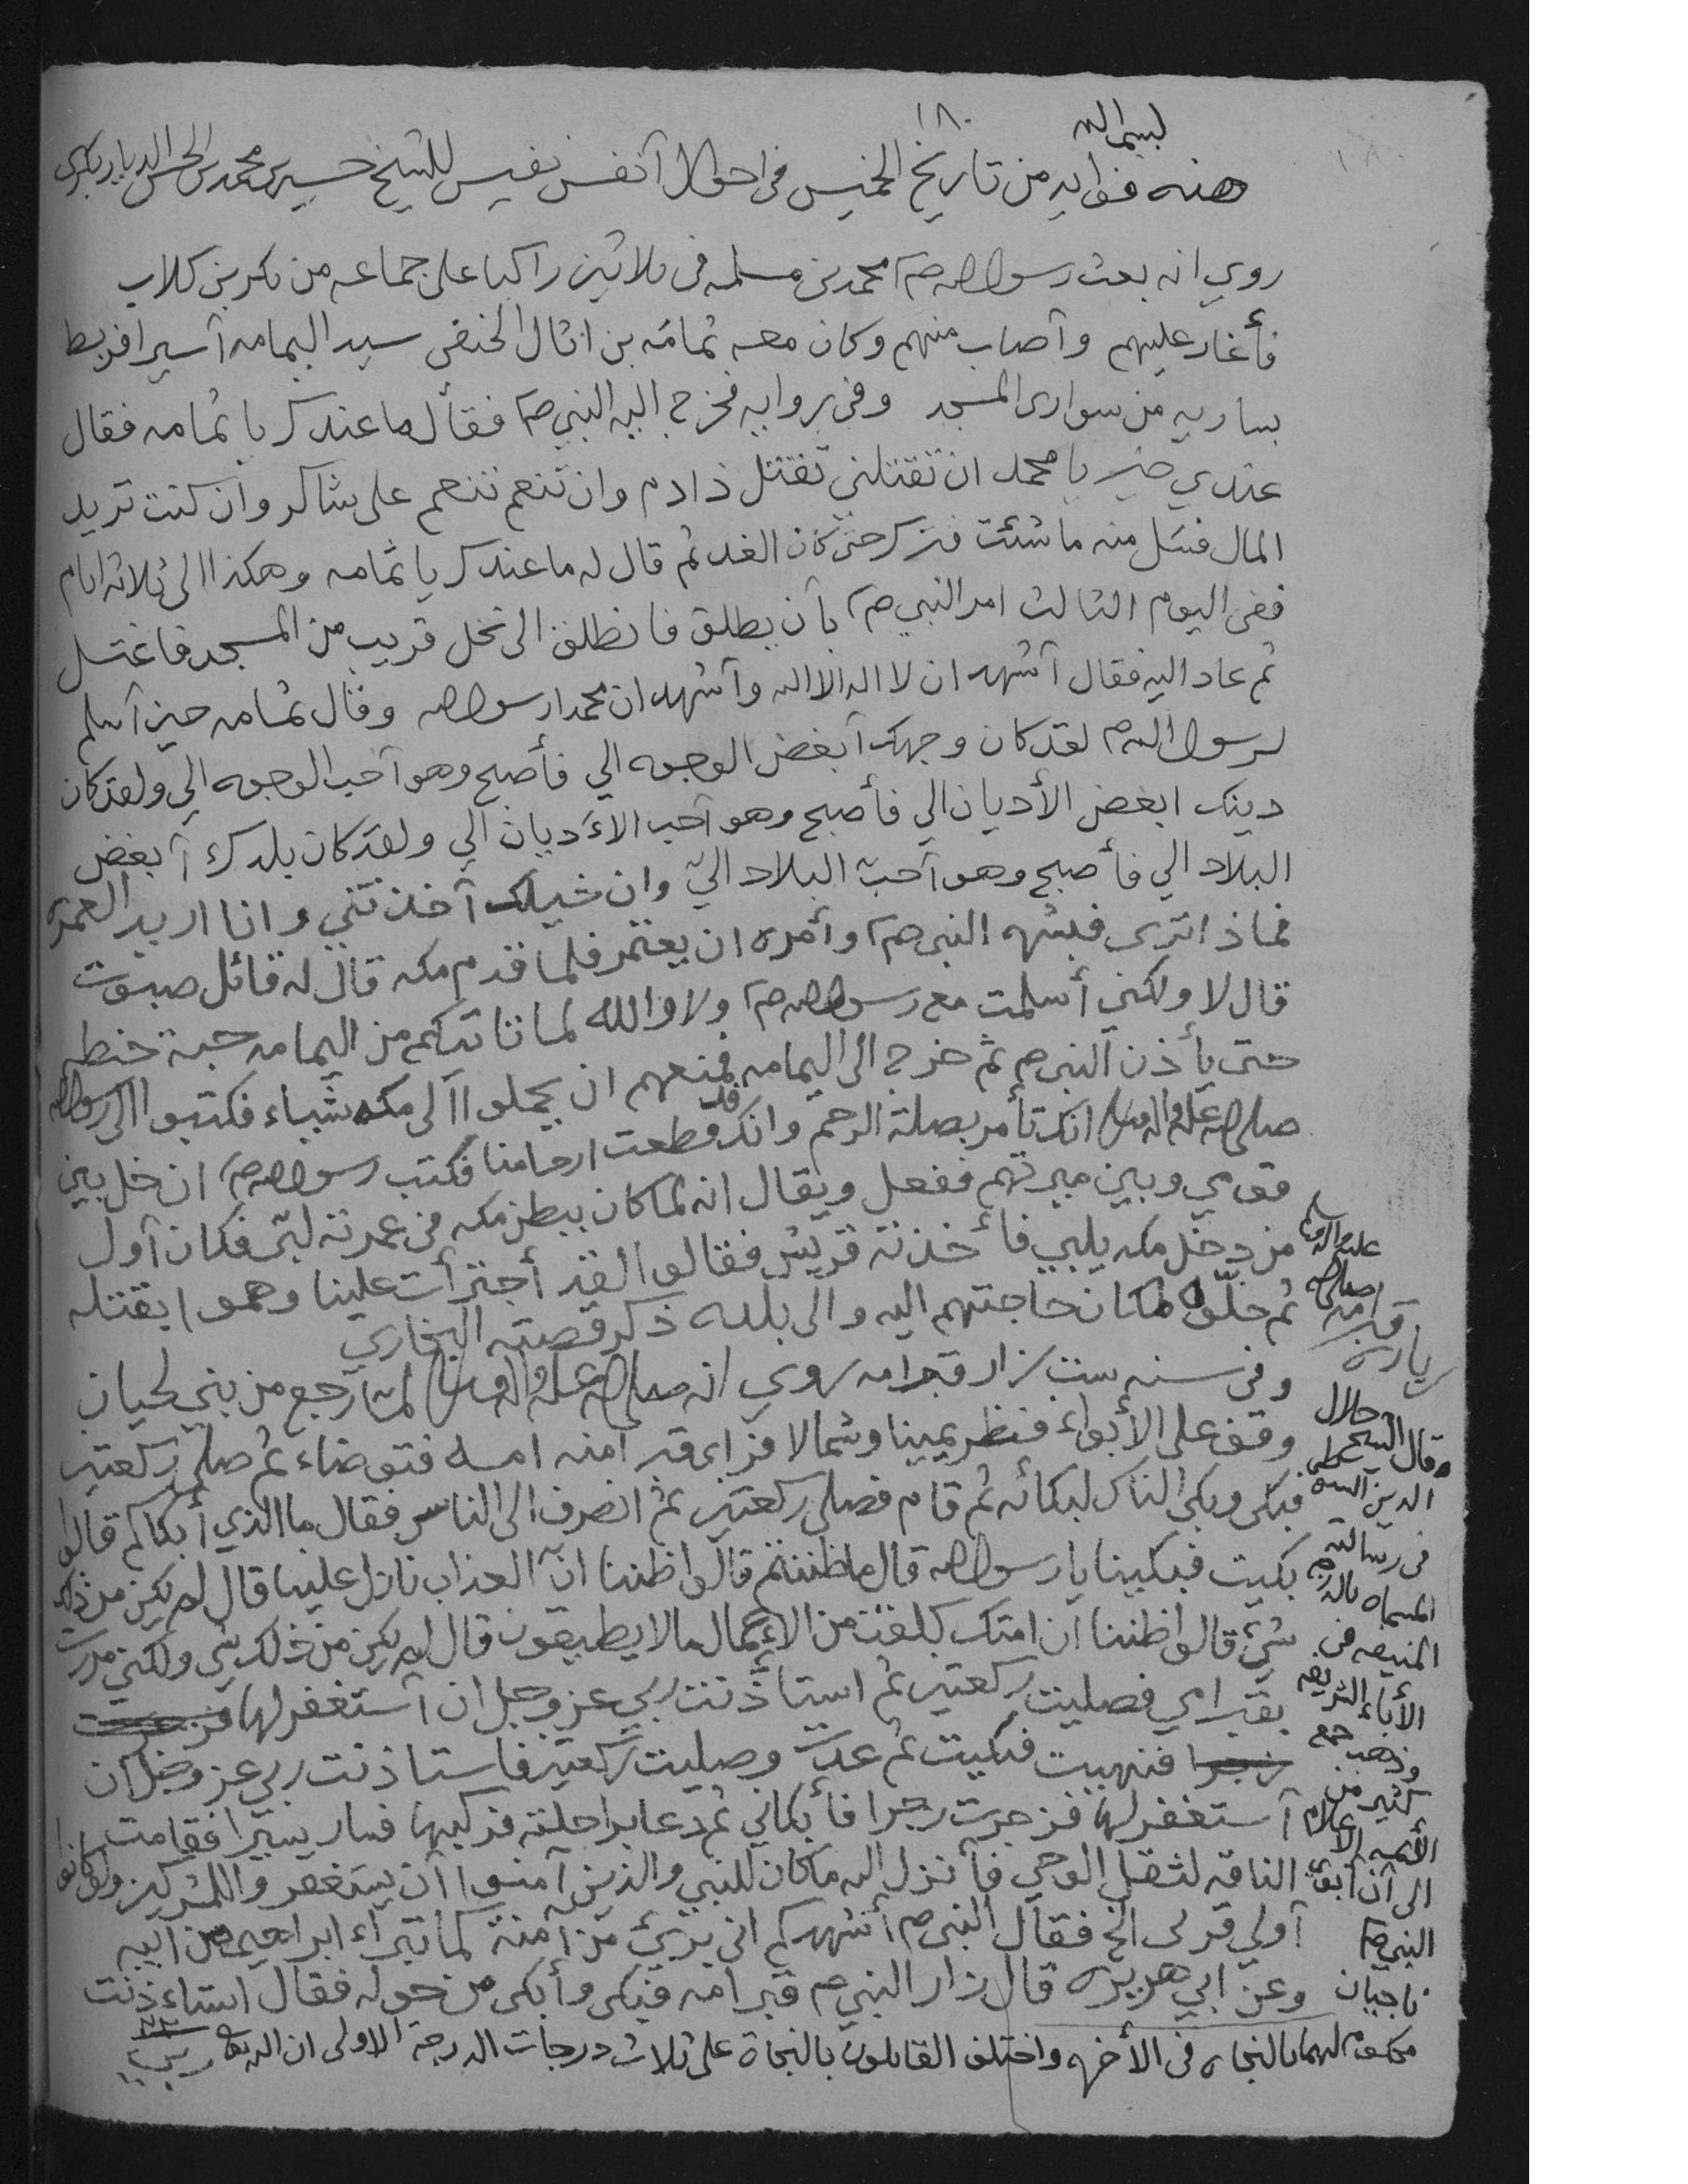 ١٨٠
بسم الله
هذه فوايد من تاريخ الخميس في احوال آنفس نفيس للشيخ حسين بن محمد بن الحسن الديار بكري
روي انه بعث رسول الله صم محمد بن مسلمه في ثلاثين راكبا على جماعه من بكر بن كلاب
فأغار عليهم وآصاب منهم وكان معه ثمامه بن اثال الحنفى سيد اليمامه آسيرا فربط
بساريه من سوارى المسجد وفى روايه فخرج اليه النبي صم فقأل ما عندك يا ثمامه فقال
عندي خير يا محمد ان تقتلني تقتل ذا دم وان تنعم تنعم على شاكر وان كنت تريد
المال فسل منه ما شئت فترك حتى كان الغد ثم قال له ما عندك يا ثمامه وهكذا الى ثلاثه ايام
ففى اليوم الثالث امر النبي صم بآن يطلق فانطلق الى نخل قريب من المسجد فاغتسل
ثم عاد اليه فقال آشهد ان لا اله الا الله وآشهد ان محمدا رسول الله وقال ثمامه حين آسلم
لرسول الله صم لقد كان وجهك آبغض الوجوه الي فأصبح وهو آحب الوجوه الي ولقد كان
دينك ابغض الأديان الي فأصبح وهو آحب الاءديان الي ولقد كان بلدك آبغض
البلاد الي فأصبح وهو آحب البلاد الي وان خيلك آخذتني وانا اريد العمرة
فماذا ترى فبشره النبي صم وأمره ان يعتمر فلما قدم مكه قال له قائل صبوت
قال لا ولكني أسلمت مع رسول الله صم ولا والله لما تاتيكم من اليمامه حبة حنطه
حتى يأذن النبي صم ثم خرج الى اليمامه فمنعهم ان يحملوا آلى مكه شياء فكتبوا الى رسول الله
صلى الله عليه وآله وسلم انك تأمر بصلة الرحم وانك قد قطعت ارحامنا فكتب رسول الله صم ان خل بين
قومي وبين ميرتهم ففعل ويقال انه لما كان ببطن مكه في عمرته لبى فكان آول
من دخل مكه يلبي فأخذته قريش فقالوا لقد أجترأت علينا وهموا بقتله
ثم خلوه لمكان حاجتهم اليه والى بلده ذكر قصته البخاري
وفى سنه ست زار قبر امه روي انه صلى الله عليه وآله وسلم لما رجع من بني لحيان
وقف على الأبواء فنظر يمينا وشمالا فراى قبر آمنه امه فتوضاء ثم صلى ركعتين
فبكى وبكى الناس لبكائه ثم قام فصلى ركعتين ثم انصرف الى الناس فقال ما الذي أبكاكم قالوا
بكيت فبكينا يا رسول الله قال ما ظننتم قالوا ظننا ان العذاب نازل علينا قال لم يكن من ذلك
شيء قالوا ظننا ان امتك كلفت من الاعمال ما لا يطيقون قال لم يكن من ذلك شي ولكني مررت
بقبر امي فصليت ركعتين ثم استأذنت ربي عز وجل ان آستغفر لها
فنهيت فبكيت ثم عدت وصليت ركعتين فاستاذنت ربي عز وجل ان
آستغفر لها فزجرت زجرا فأبكاني ثم دعا براحلته فركبها فسار يسيرا فقامت
الناقه لثقل الوحي فأنزل الله ما كان للنبي والذين آمنوا آن يستغفروا للمشركين ولو كانوا
آولي قربى الخ فقال النبي صم أشهدكم اني بريء من آمنة كما تبرأء ابراهيم من ابيه
وعن ابي هريره قال زار النبي صم قبر امه فبكى وأبكى من حوله فقال استاءذنت
ربي
زيارته
قبر امه
صلى الله
عليه وآله وسلم
وقال الشيخ جلال
الدين السيوطي
فى رسالته
المسماه بالدرج
المنيفه فى
الأباء الشريفه
وذهب جمع
كثير من
الأئمه الاعلام
الى آن ابوي
النبي صم
ناجيان
محكوم لهما بالنجاه فى الأخره واختلف القايلون بالنجاة على ثلاث درجات الدرجة الاولى ان الله